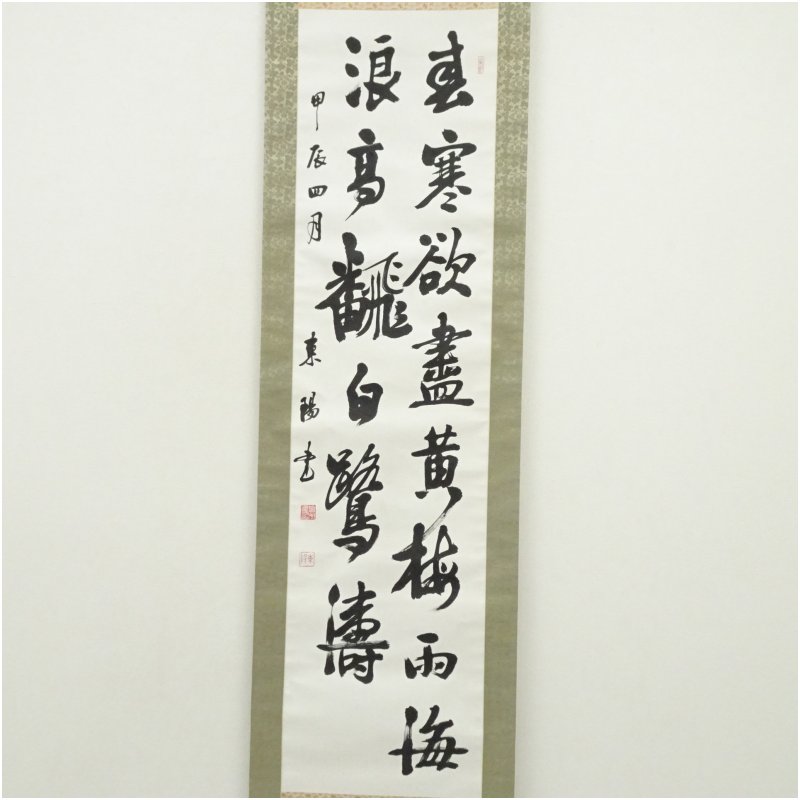 春寒欲盡黄梅雨海
浪高飜白鷺濤
甲辰四月 東陽書